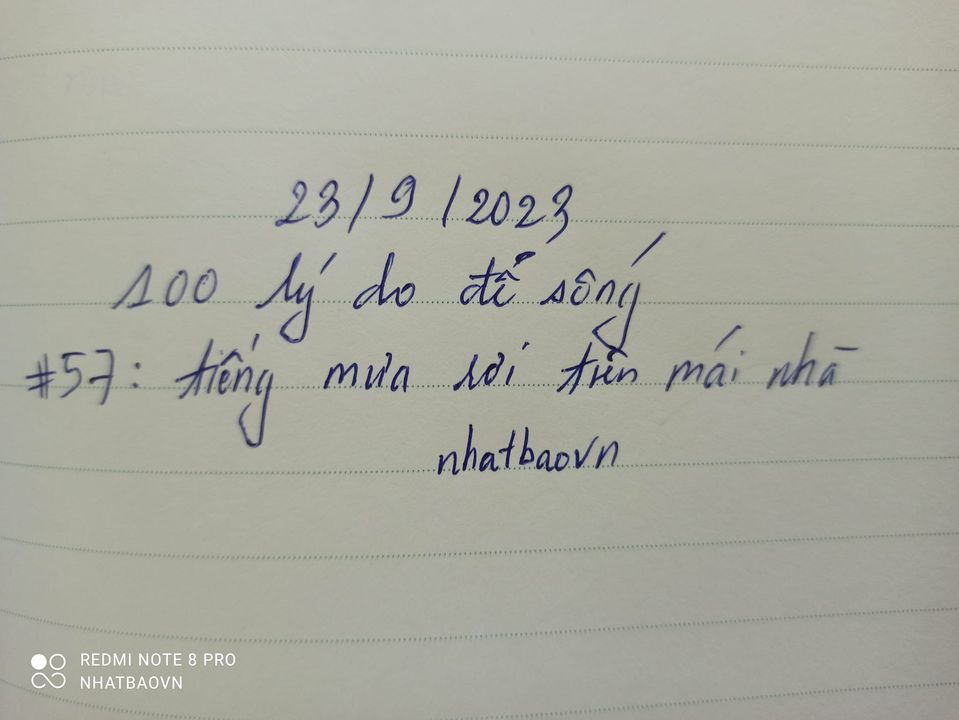 23/9/2023
100 lý do để sống
#57: tiếng mưa rơi trên mái nhà
nhatbaovn
REDMI NOTE 8 PRO
NHATBAOVN